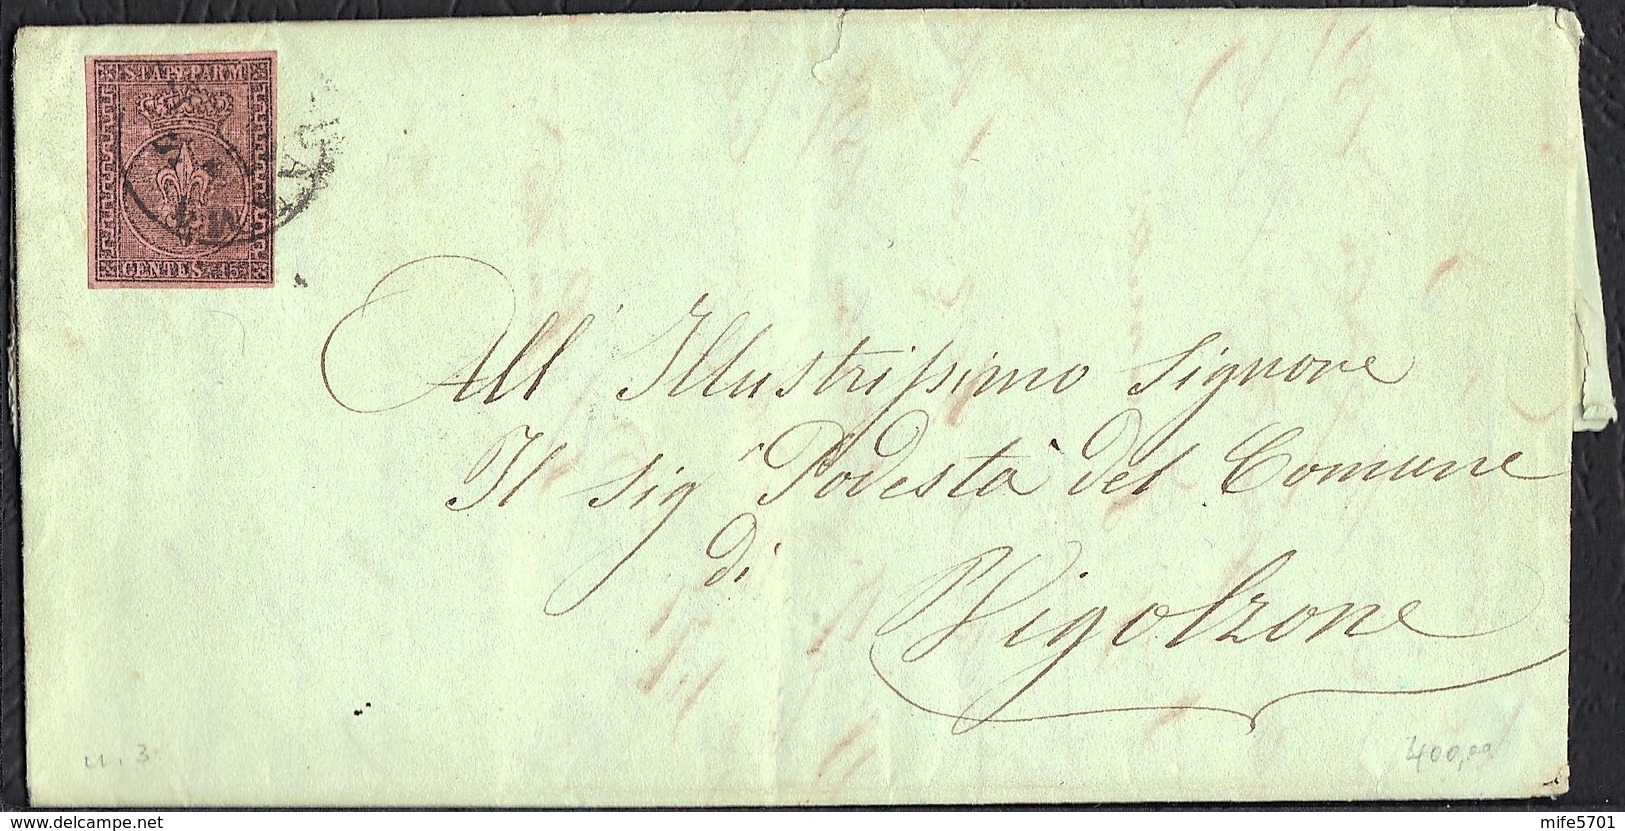 STATI PARM.
CENTES. 15
All' Illustrissimo Signore
Il Sig.r Podestà del Comune
di
Vigolzone
n. 3
400,00
delcampe.net
mife5701